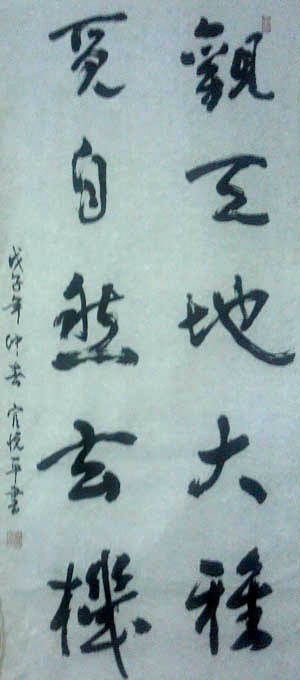 觀天地大雅
覓自然玄機
戊子年仲春 悦平書